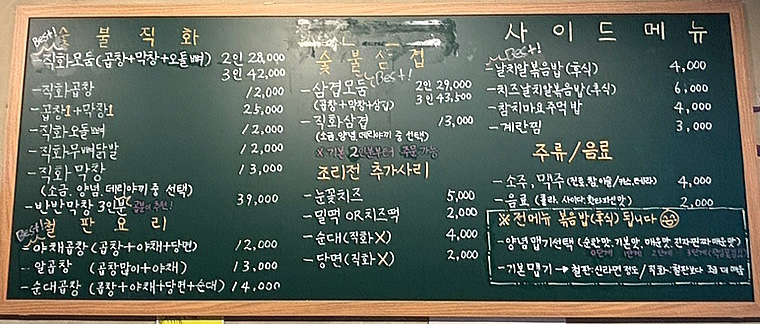 Best! 숯불직화
-직화모둠(곱창+막창+오돌뼈) 2인 28,000
3인 42,000
-직화곱창 12,000
-곱창1+막창1 25,000
-직화오돌뼈 12,000
-직화무뼈닭발 12,000
-직화 막창 13,000
(소금, 양념, 데리야끼 중 선택)
-반반막창 3인분 39,000
Best! 철판요리
-야채곱창 (곱창+야채+당면) 12,000
-알곱창 (곱창많이+야채) 13,000
-순대곱창 (곱창+야채+당면+순대) 14,000
숯불삼겹
Best!
-삼겹모둠 2인 29,000
(곱창+막창+삼겹) 3인 43,500
-직화삼겹 13,000
(소금,양념,데리야끼 중 선택)
※기본 2인분부터 주문가능
조리전 추가사리
-눈꽃치즈 5,000
-밀떡 OR치즈떡 2,000
-순대(직화X) 4,000
-당면(직화X) 2,000
사이드메뉴
Best!
-날치알볶음밥(후식) 4,000
-치즈날치알볶음밥(후식) 6,000
-참치마요주먹밥 4,000
-계란찜 3,000
주류/음료
-소주, 맥주 4,000
-음료 (콜라, 사이다, 환타파인맛) 2,000
※전메뉴 볶음밥(후식) 됩니다
-양념맵기선택 (순한맛, 기본맛, 매운맛, 진짜찐짜매운맛)
0단계 1단계 2단계 3단계
-기본맵기→철판:신라면정도 / 직화:철판보다 조금 더 매움